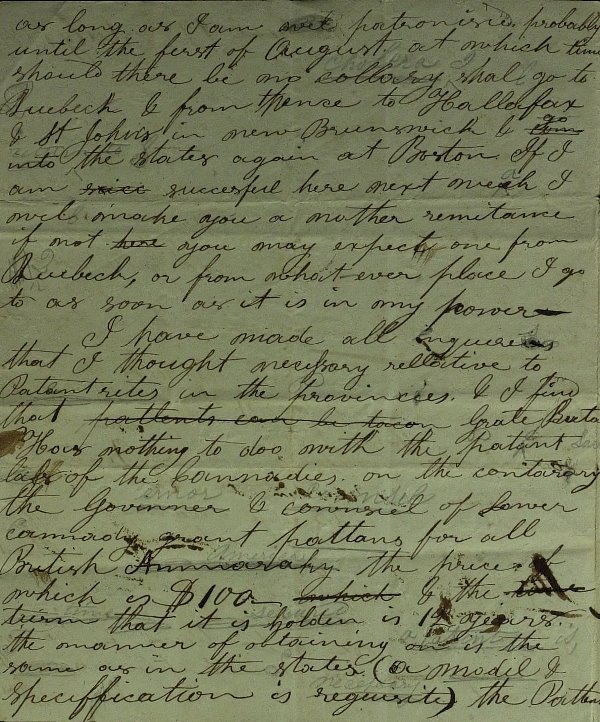 as long as I am well patronised probably
until the first of August at which time
should there be no collary shall go to
Quebeck & from thence to Hallafax
& St Johns in new Brunswick & go
into the states again at Boston. If I
am succesful here next week I
will make you a nother remitance
if not here you may expect one from
Quebeck, or from what ever place I go
to as soon as it is in my power—
I have made all inquires
that I thought necessary rellative to
Patantrites in the provinces. & I find
that pattents can be tacon Grate Breta
Has nothing to doo with the patant
laws of the Cannadies on the contarary
the Govinner & counsiel of Lower
cannady grant pattans for all
British the price of
which is $100 which & the
turm that it is holden is 14 years.
the manner of obtaining on is the
same as in the states (a model &
speciffication is requisite) the Patten